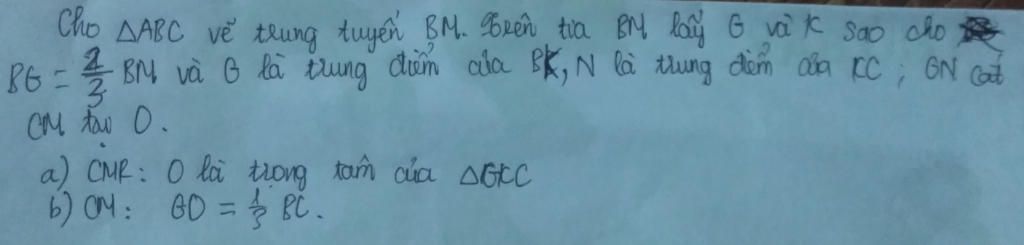 Cho △ABC vẽ trung tuyến BM. Trên tia BM lấy G và K sao cho
BG = 2/3 BM và G là trung điểm của BK, N là trung điểm của KC ; GN cắt
CM tại O.
a) CMR: O là trọng tâm của △GKC
b) CM: GO = 1/3 BC.